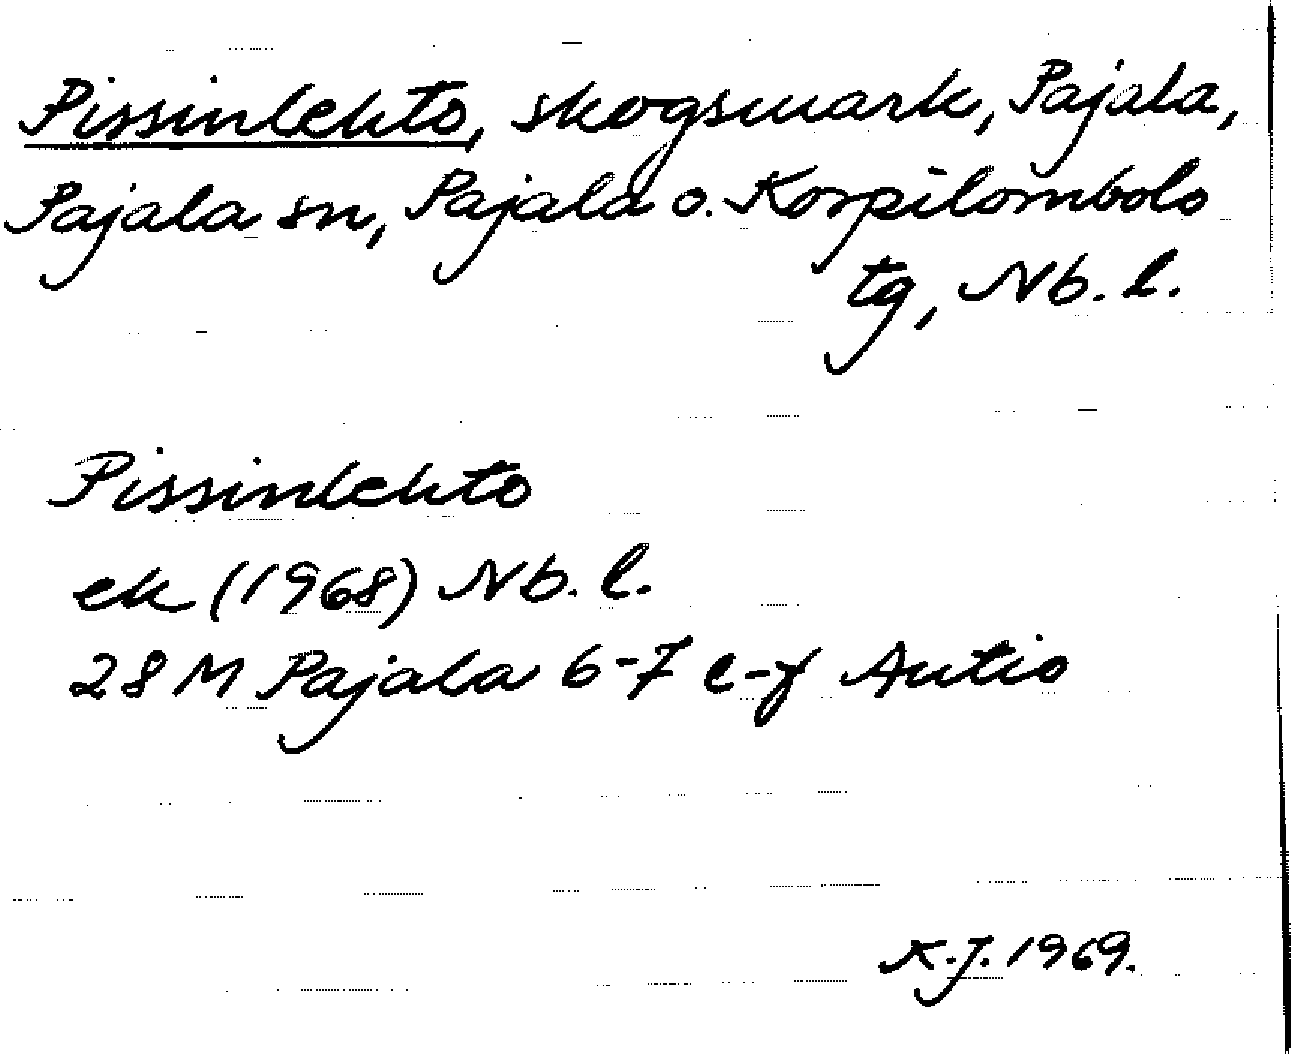 Pissinlehto, skogsmark, Pajala,
Pajala sn, Pajala o. Korpilombolo
tg, Nb. l.
Pissinlehto
ek (1968) Nb. l.
28 M Pajala 6-7 e-f Autio
K.J. 1969.